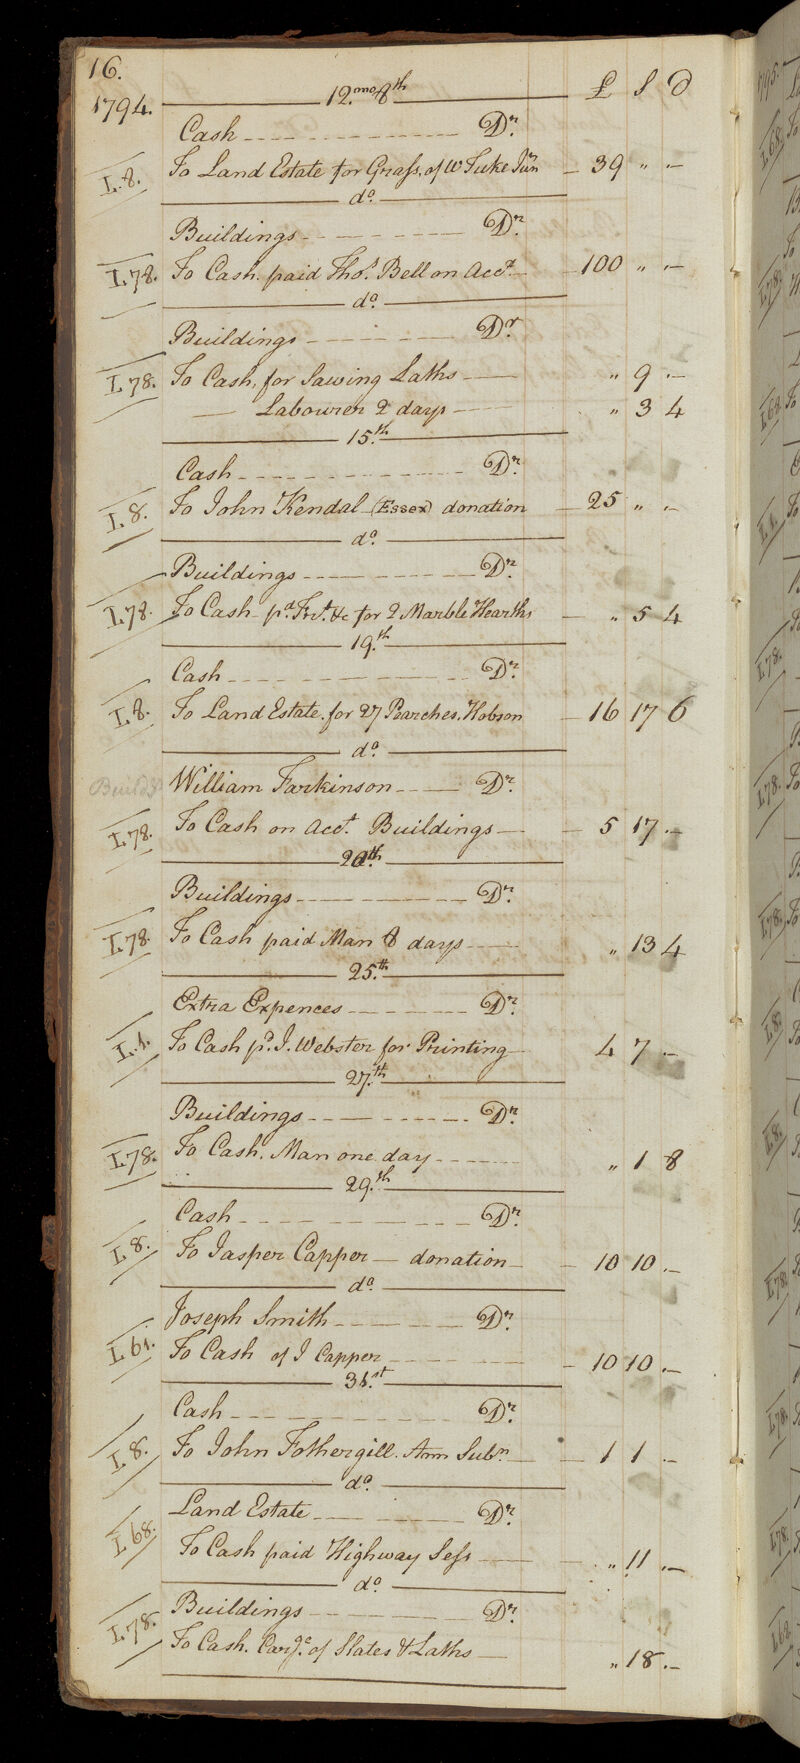 16.
1794. 12.mo 8th £ S D
Cash Dr.
L.8. To Land Estate for Grass, of W Tuke Junr 39 " -
do.
Buildings Dr.
L.78. To Cash paid Thos. Bell on Acct. 100 " -
do.
Buildings Dr
L.78. To Cash, for Sawing Laths " 9 -
Labourer 2 days " 3 4
15.th
Cash Dr.
L.8. To John Kendal (Essex) donation 25 " -
do.
Buildings Dr.
L.78. To Cash pd. Frt. &c for 2 Marble Hearths " 5 4
19.th
Cash Dr.
L.8. To Land Estate for 27 Pearches, Hobson 16 17 6
do.
Build.gs William Farkinson Dr.
L.78. To Cash on Acct. Buildings 5 17 -
20th
Buildings Dr.
L.78. To Cash paid Man 8 days " 13 4
25.th
Extra Expences Dr.
L.1. To Cash pd. J. Webster for Printing 4 7 -
27.th
Buildings Dr.
L.78. To Cash. Man one day " 1 8
29.th
Cash Dr.
L.8. To Jasper Capper — donation 10 10 -
do.
Joseph Smith Dr.
L.61. To Cash of J Capper 10 10 -
31.st
Cash Dr.
L.8. To John Fothergill. Ann Subn. 1 1 -
do.
Land Estate Dr.
L.68. To Cash paid Highway Sess " 11 -
do.
Buildings Dr.
L.78. To Cash. Carge. of Slates & Laths " 18 -